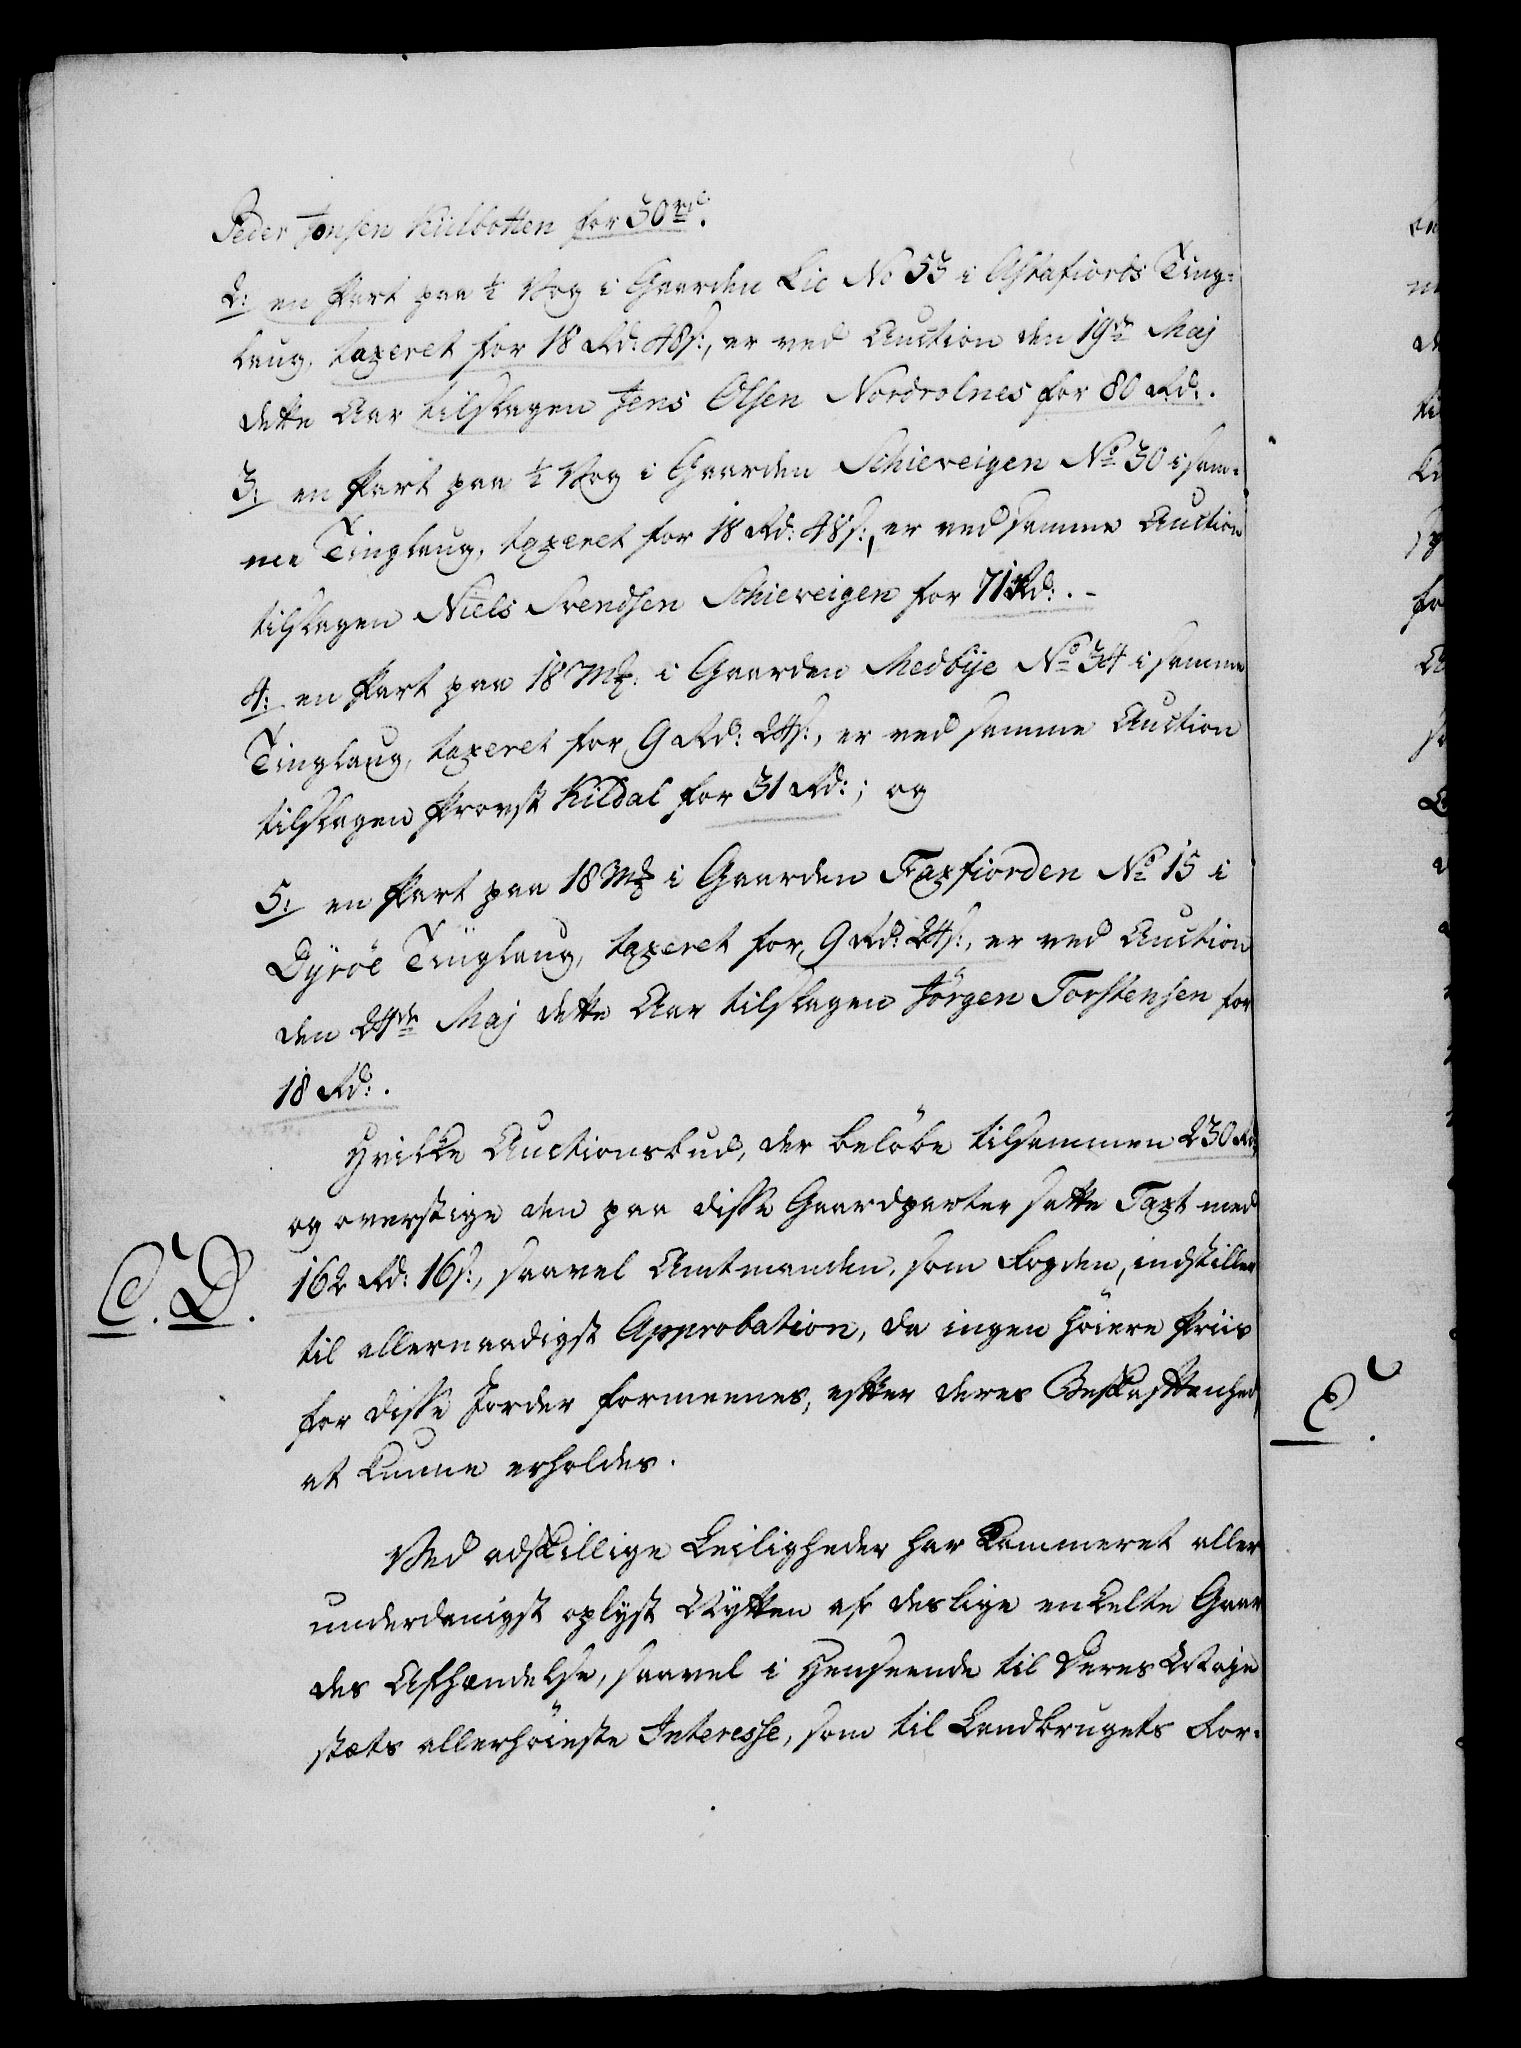 Peder Jonsen Külbotten for 30 rd.
2: en Part paa ½ Vog i Gaarden Lie No 53 i Astafiords Ting-
laug, taxeret for 18 Rd: 48 s:, er ved Auction den 19de Maj
dette Aar tilslagen Jens Olsen Nordrolnes for 80 Rd:.
3: en Part paa ½ Vog i Gaarden Schieveigen No 30 i sam-
me Tinglaug, taxeret for 18 Rd: 48 s:, er ved samme Auction
tilslagen Niels Svendsen Schieveigen for 71 Rd:. -
4: en Part paa 18 Mk: i Gaarden Medbÿe No 34 i samme
Tinglaug, taxeret for 9 Rd: 24 s:, er ved samme Auction
tilslagen Provst Kildal for 31 Rd:; og
5: en Part paa 18 Mk i Gaarden Faxfiorden No 15 i
Dÿröe Tinglaug, taxeret for 9 Rd: 24 s:, er ved Auction
den 24de Maj dette Aar tilslagen Jörgen Torstensen for
18 Rd:.
Hvilke Auctionsbud, der belöbe tilsammen 230 Rd:
og overstige den paa disse Gaardparter satte Taxt med
162 Rd: 16 s:, saavel Amtmanden, som Fogden, indstiller
C. D.
til allernaadigst Approbation, da ingen höiere Priis
for disse Jorder formeenes, efter deres Beskaffenhed,
E.
at kunne erholdes.
Ved adskillige Leiligheder har Kammeret aller
underdanigst oplyst Nytten af deslige enkelte Gaar
des Afhændelse, saavel i Henseende til Deres Maje
stæts allerhöieste Interesse, som til Landbrugets For-